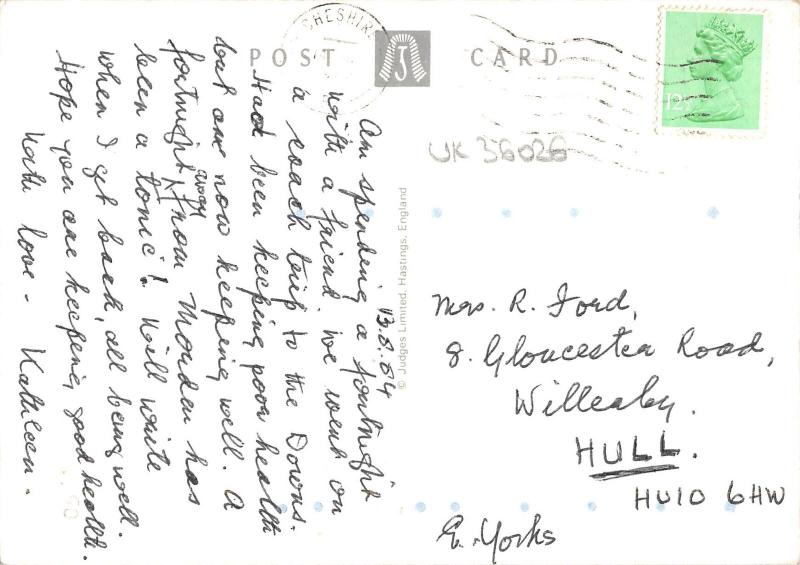 POST 3 CARD
CHESHIRE
12½
UK 36026
13.8.84
Am spending a fortnight
with a friend. We went on
a coach trip to the Downs.
Had been keeping poor health
but am now keeping well. A
fortnight away from Morden has
been a tonic! Will write
when I get back, all being well.
Hope you are keeping good health.
With love - Kathleen.
© Judges Limited, Hastings, England
Mrs. R. Ford,
8. Gloucester Road,
Willerby.
HULL.
HU10 6HW
E. Yorks